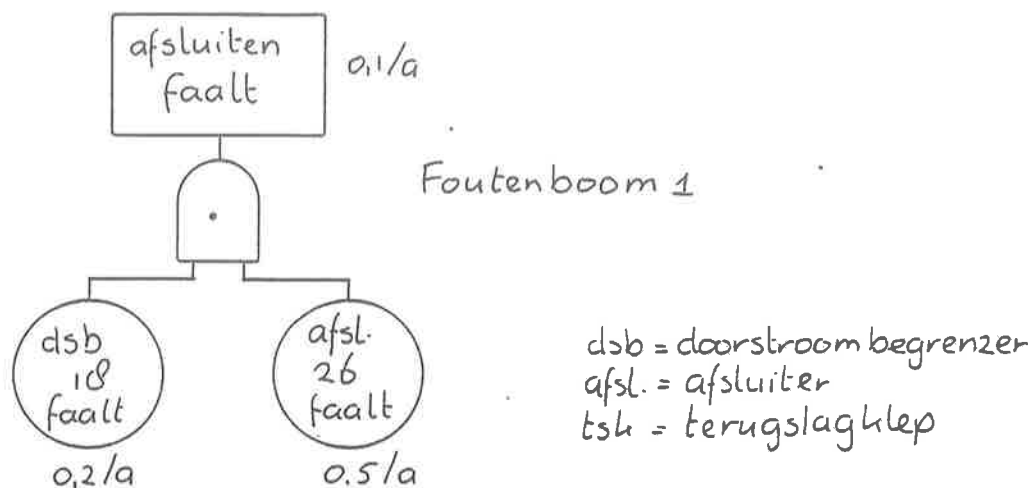 afsluiten
faalt
0,1/a
Foutenboom 1
dsb
18
faalt
0,2/a
afsl.
26
faalt
0.5/a
dsb = doorstroombegrenzer
afsl. = afsluiter
tsk = terugslagklep